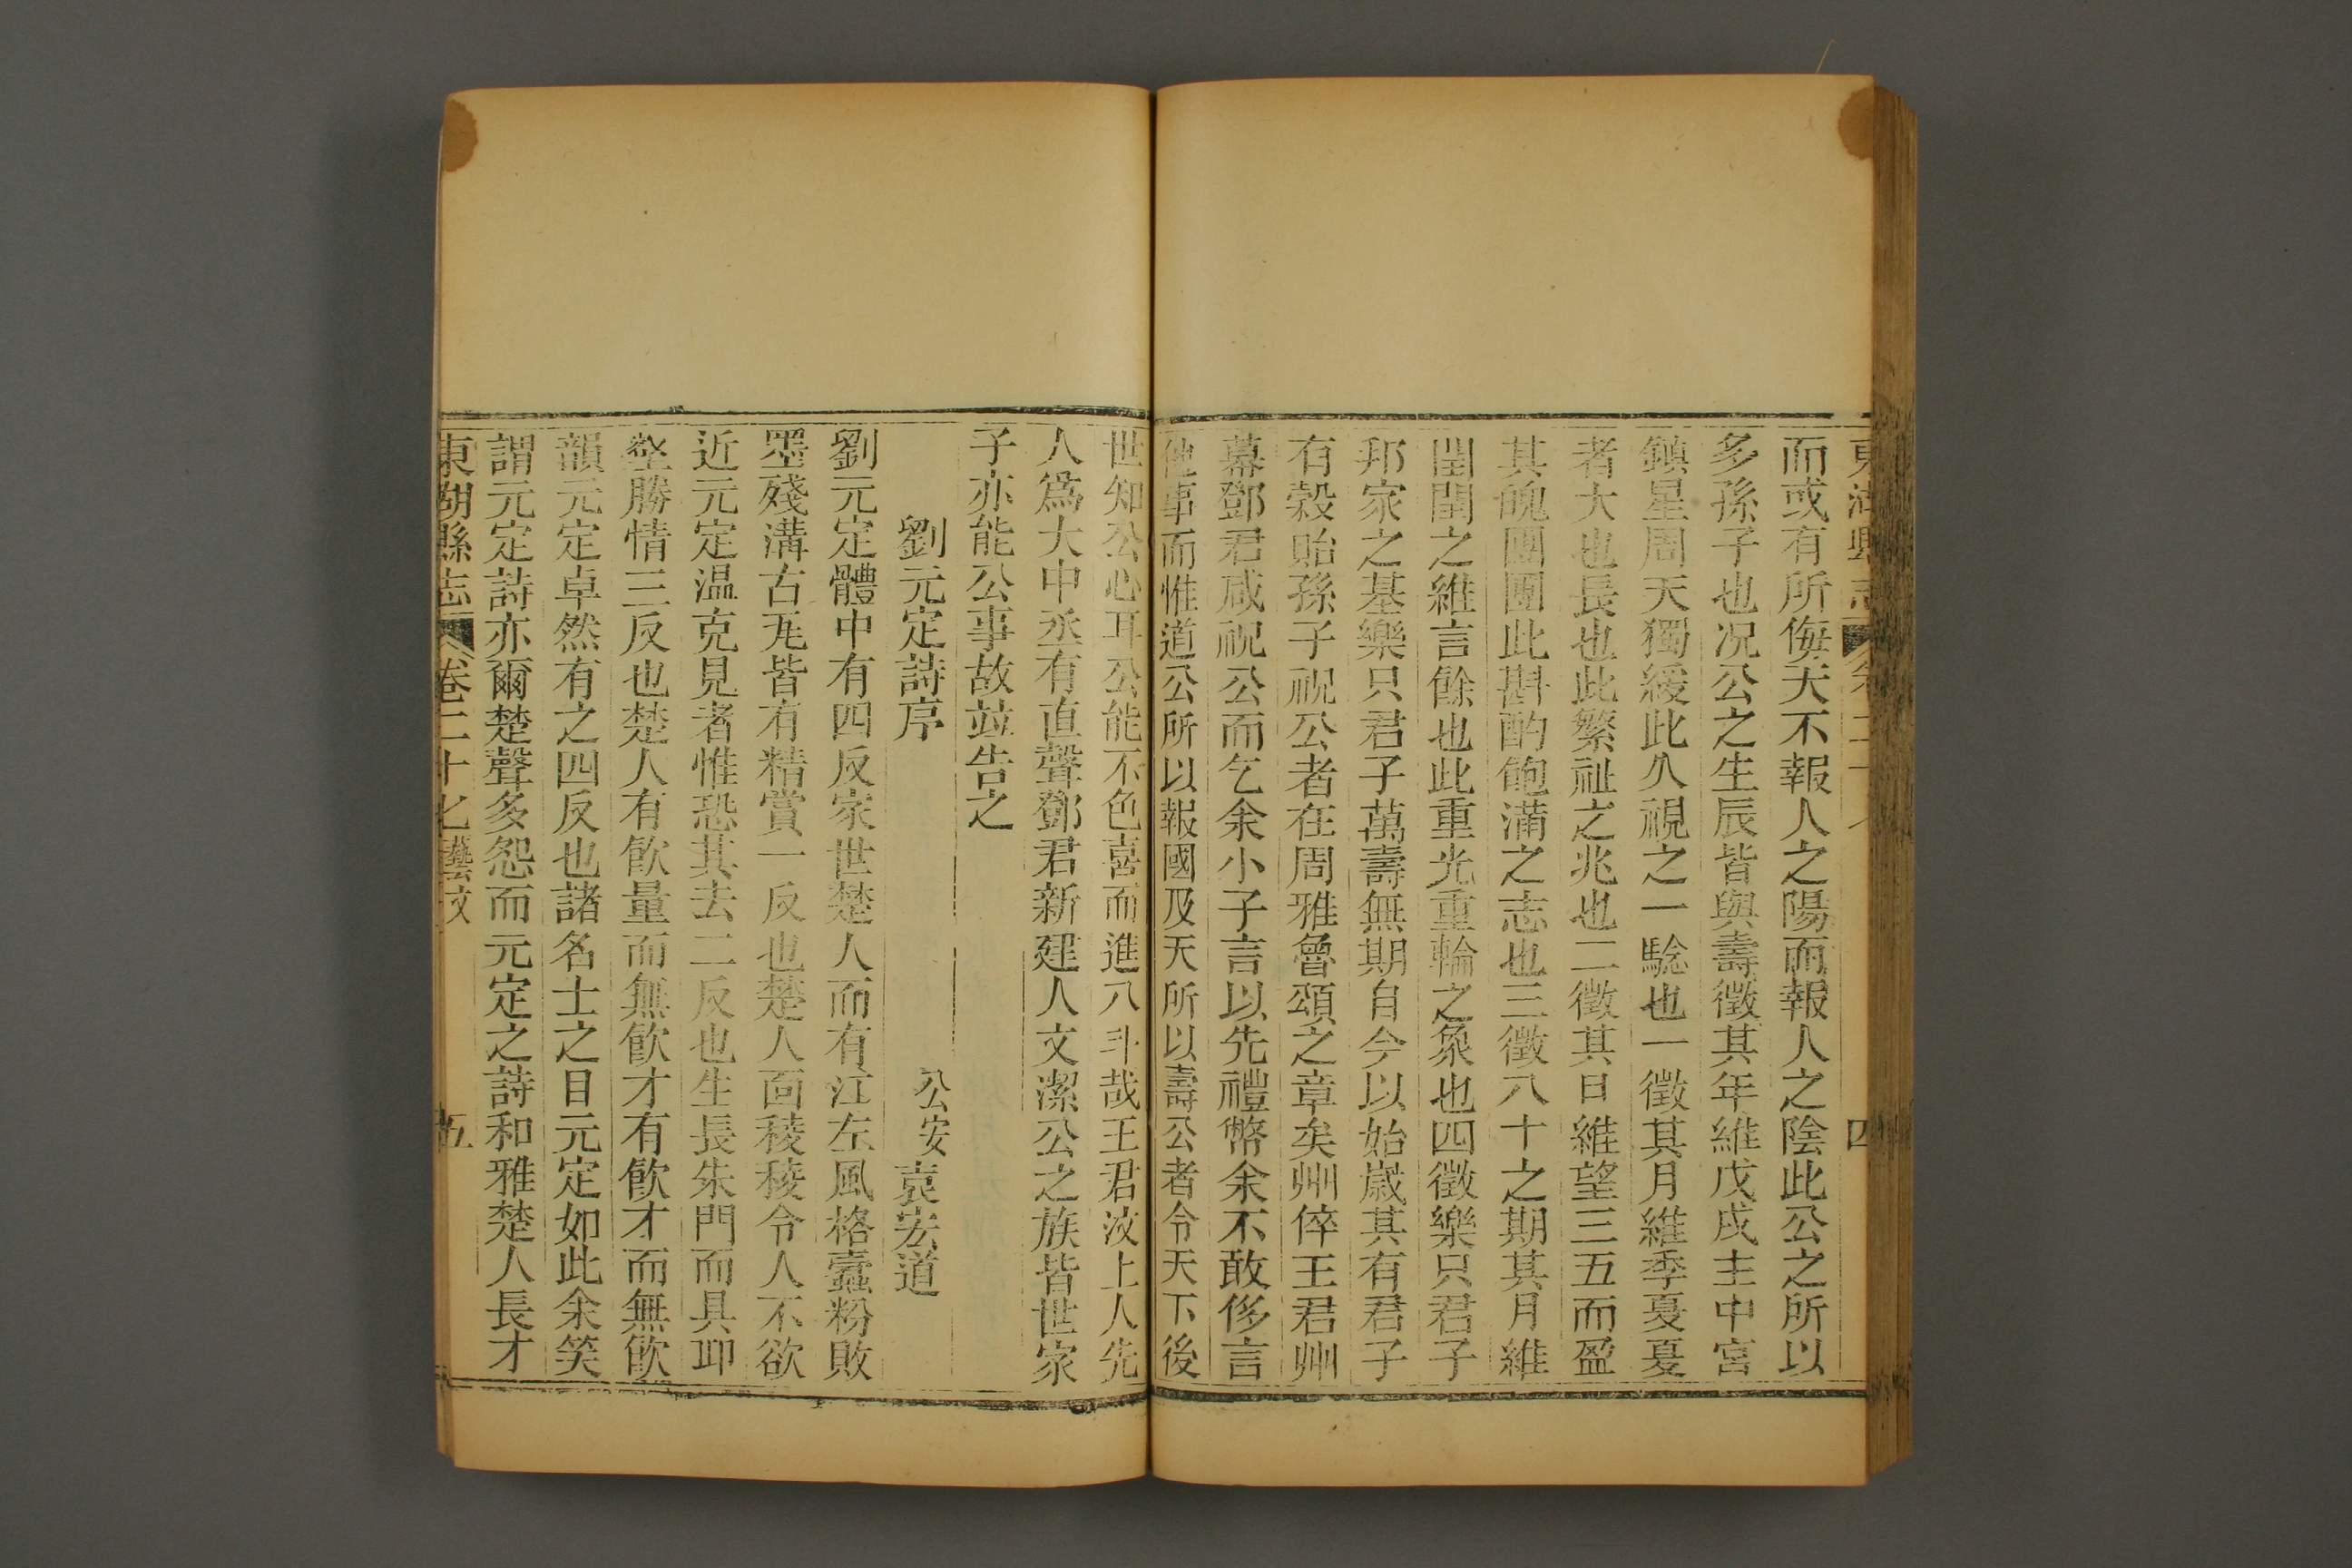 而或有所侮天不報人之陽而報人之陰此公之所以
多孫子也况公之生辰皆與壽徵其年維戊戌主中宮
鎮星周天獨緩此久視之一騐也一徵其月維季夏夏
者大也長也此繁祉之兆也二徵其日維望三五而盈
其魄團團此斟酌飽滿之志也三徵八十之期其月維
閏閏之維言餘也此重光重輪之象也四徵樂只君子
邦家之基樂只君子萬壽無期自今以始歲其有君子
有穀貽孫子祝公者在周雅魯頌之章矣州倅王君州
幕鄧君咸祝公而乞余小子言以先禮幣余不敢侈言
他事而惟道公所以報國及天所以壽公者令天下後
世知公心耳公能不色喜而進八斗哉王君汶上人先
人爲大中丞有直聲鄧君新建人文潔公之族皆世家
子亦能公事故竝告之
劉元定詩序
公安袁宏道
劉元定體中有四反家世楚人而有江左風格蠹粉敗
墨殘溝古瓦皆有精賞一反也楚人面稜稜令人不欲
近元定温克見者惟恐其去二反也生長朱門而具丘
壑勝情三反也楚人有飲量而無飲才有飲才而無飲
韻元定卓然有之四反也諸名士之目元定如此余笑
謂元定詩亦爾楚聲多怨而元定之詩和雅楚人長才
東湖縣志 卷二十七藝文 五